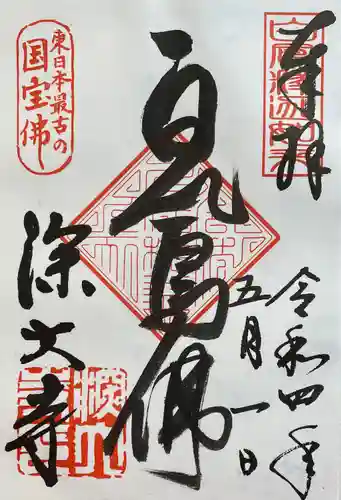 奉拝
令和四年
五月一日
白鳳佛
東日本最古の
国宝佛
深大寺